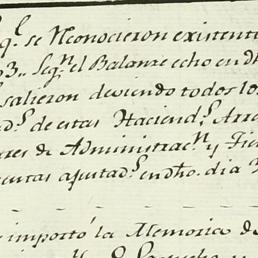 q.e se Reconocieron existent
3.. Seg.n el Balanze echo en dh
salieron deviendo todos lo
ad.s de estas Haciend.s Arr
res de Administrac.n y Fie
cuentas ajustad.s en dho. dia
importó la Memoria d